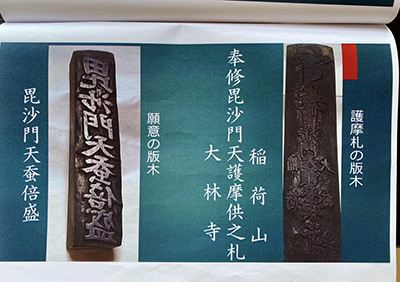 護摩札の版木
稲荷山
大林寺
奉修毘沙門天護摩供之札
願意の版木
毘沙門天蚕倍盛
毘沙門天蚕倍盛